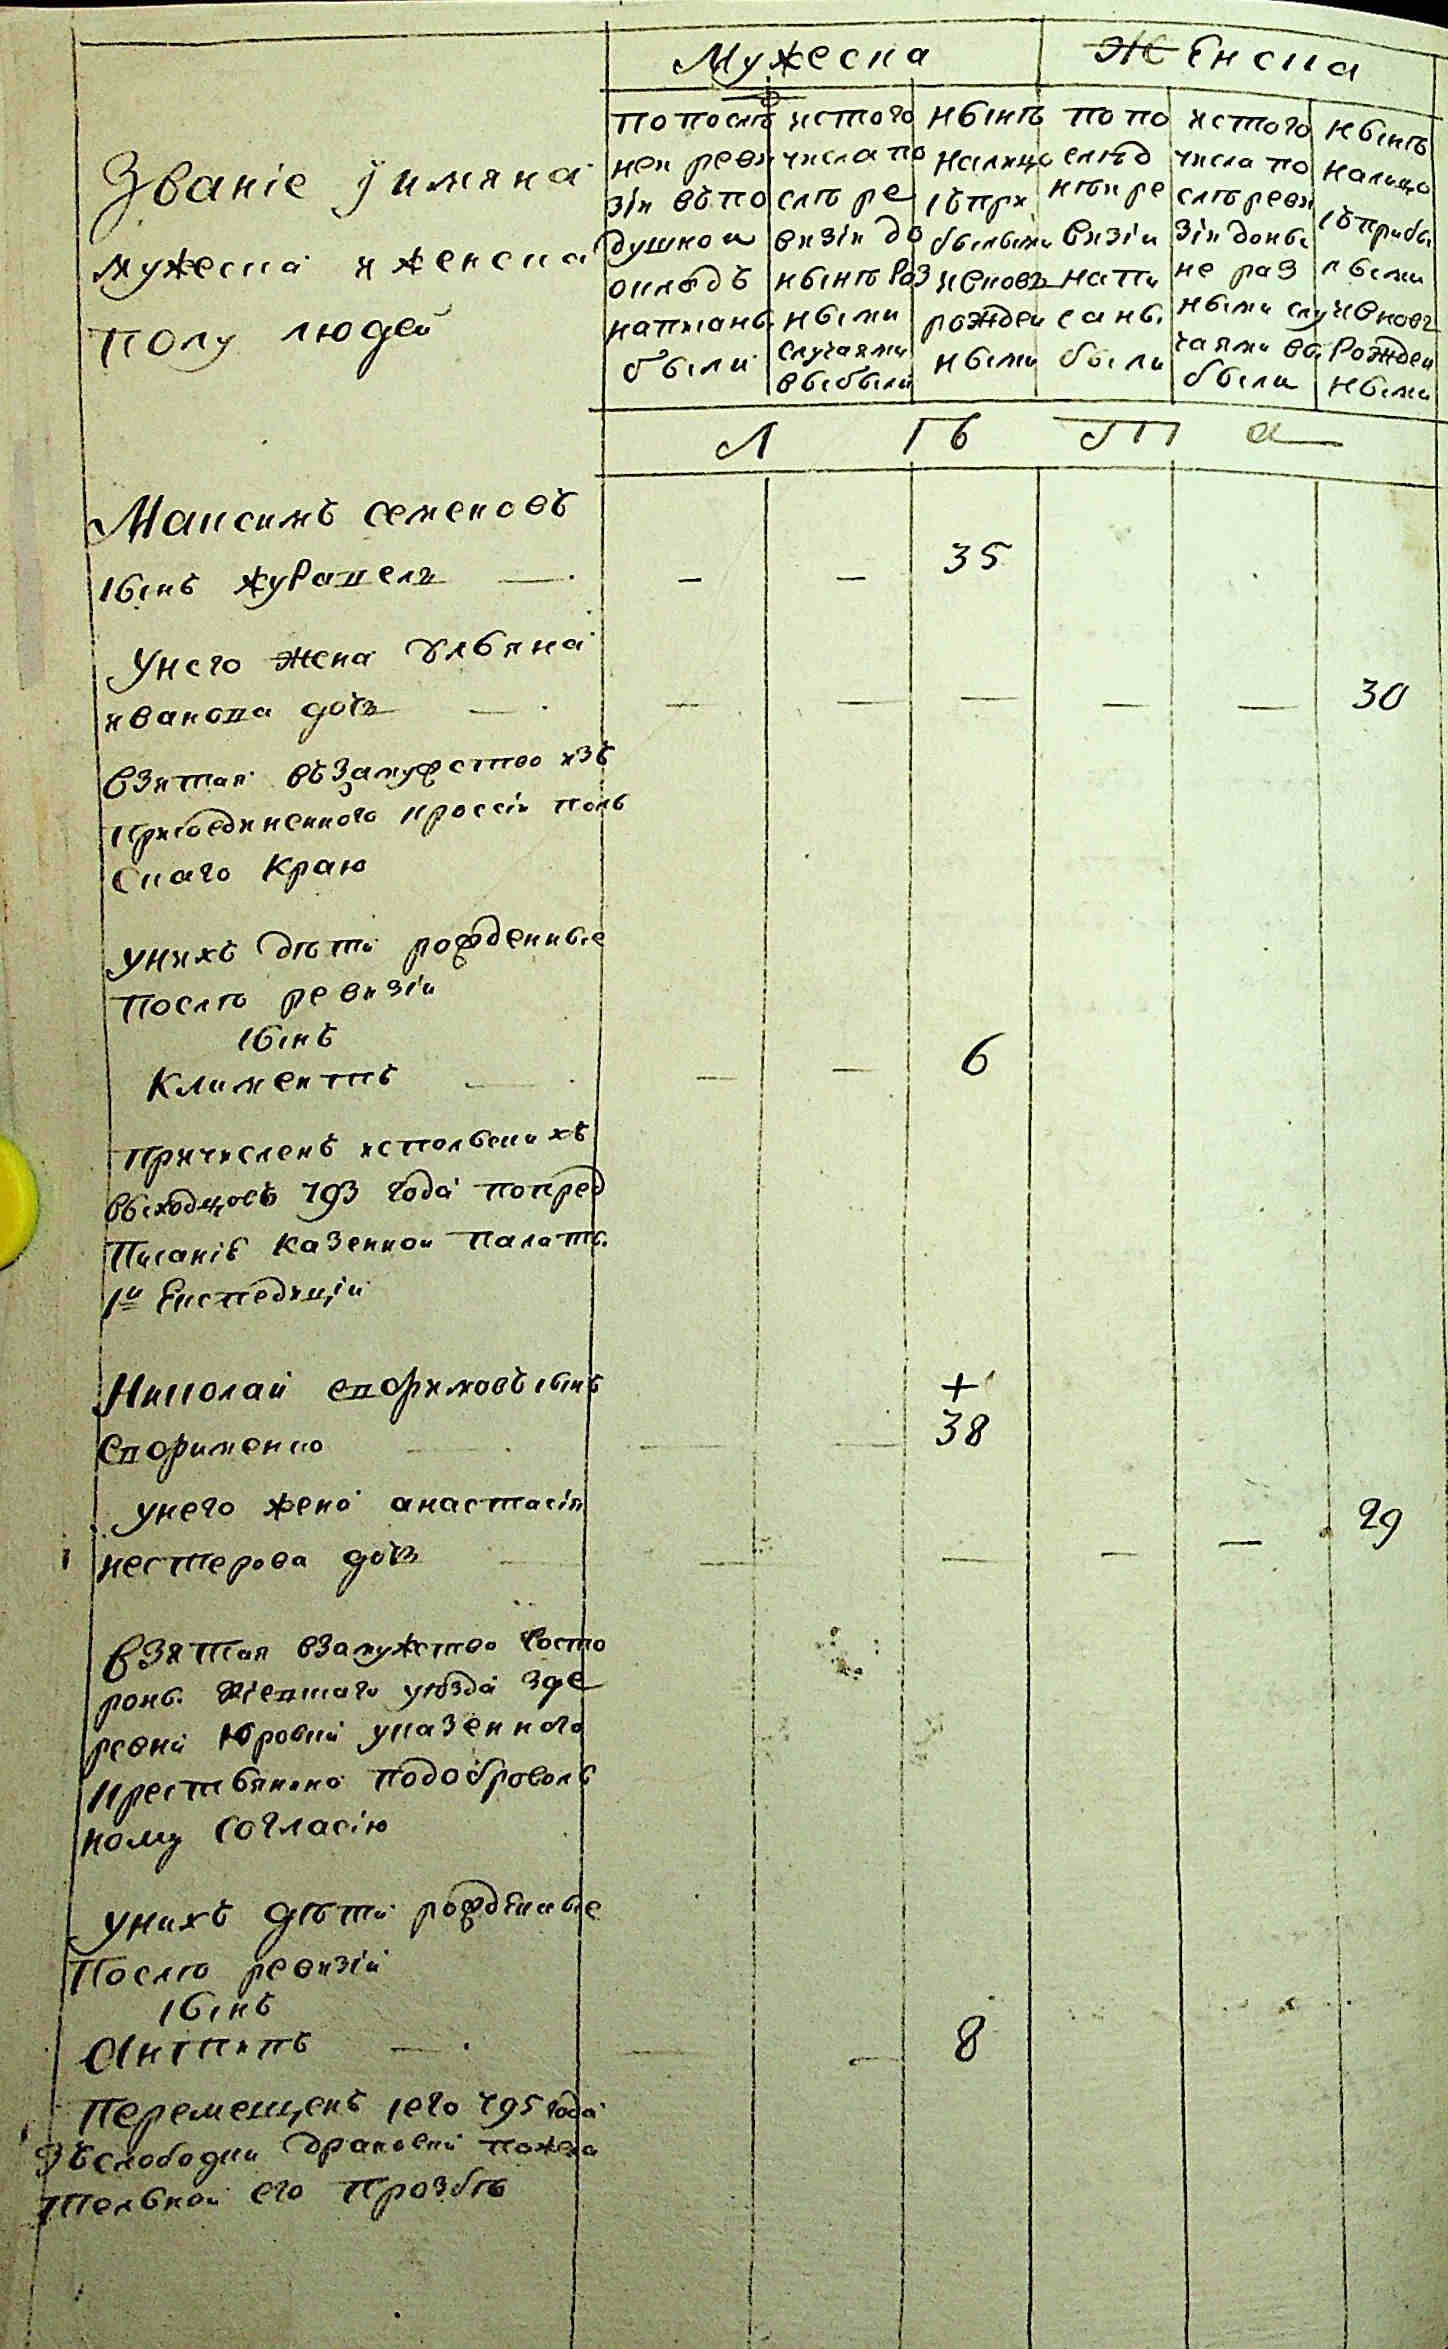 Мужеска Женска
Званіе ӱ имяна
мужеска и женска
полу людей
по после
ней реви
зіи въ по
душном
окладъ
написаны
были
ис того
числа по
слѣ ре
визіи до
нынѣ раз
ными
случаями
выбыли
нынѣ
налицо
съ при
былыми
и вновь
рожден
ными
по по
след
нѣй ре
визіи
напи
саны
были
ис того
числа по
слѣ реви
зіи доны
не раз
ными слу
чаями вы
были
нынѣ
налицо
съ прибы
лыми
и вновь
рожден
ными
Л ѣ т а
Максимъ семеновъ
сынъ журавель — 35
У него жена ульяна
иванова дочь — 30
взятая въ замужство изъ
присоединенного к россіи поль
скаго краю
у нихъ дѣти рожденные
послѣ ревизіи
сынъ
Климентъ — 6
причисленъ ис польскихъ
выходцовъ 793 года по пред
писанію казенной палаты
1й Експедиціи
+
Николай ефимовъ сынъ
ефименко — 38
у него жена анастасія
нестерова дочь — 29
взятая в замужство состо
роны кіевскаго уѣзда з де
ревни Юровки у казенного
крестьянина по доброволь
ному согласію
у нихъ дѣти рожденные
послѣ ревизіи
сынъ
Антипъ — 8
перемещенъ сего 795 года
зъ слободки драновки по жела
тельной его прозбѣ